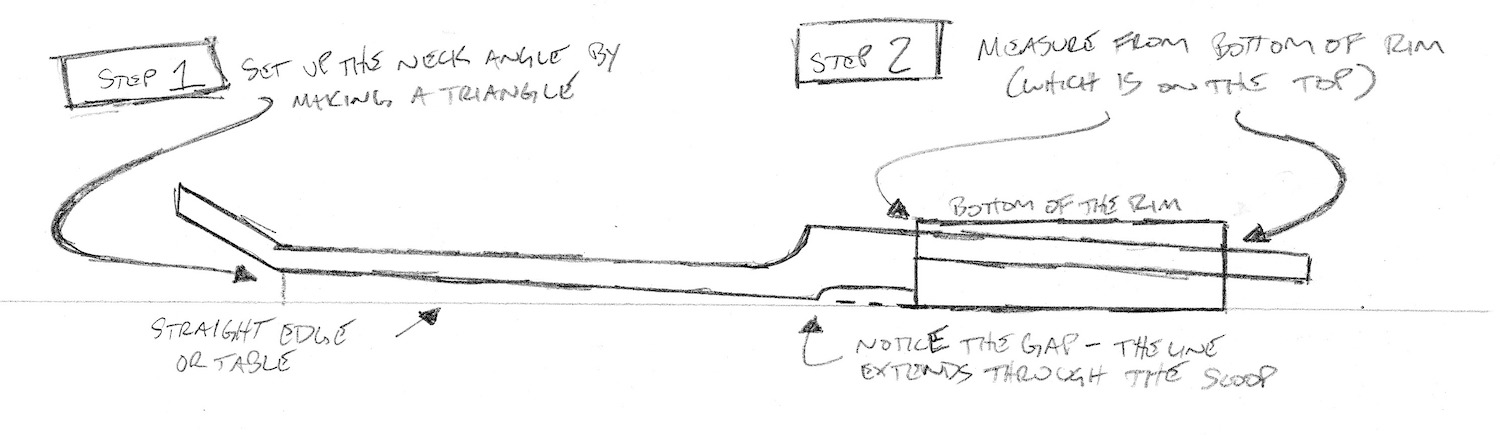 STEP 1
SET UP THE NECK ANGLE BY
MAKING A TRIANGLE
STEP 2
MEASURE FROM BOTTOM OF RIM
(WHICH IS ON THE TOP)
BOTTOM OF THE RIM
STRAIGHT EDGE
OR TABLE
NOTICE THE GAP - THE LINE
EXTENDS THROUGH THE SCOOP